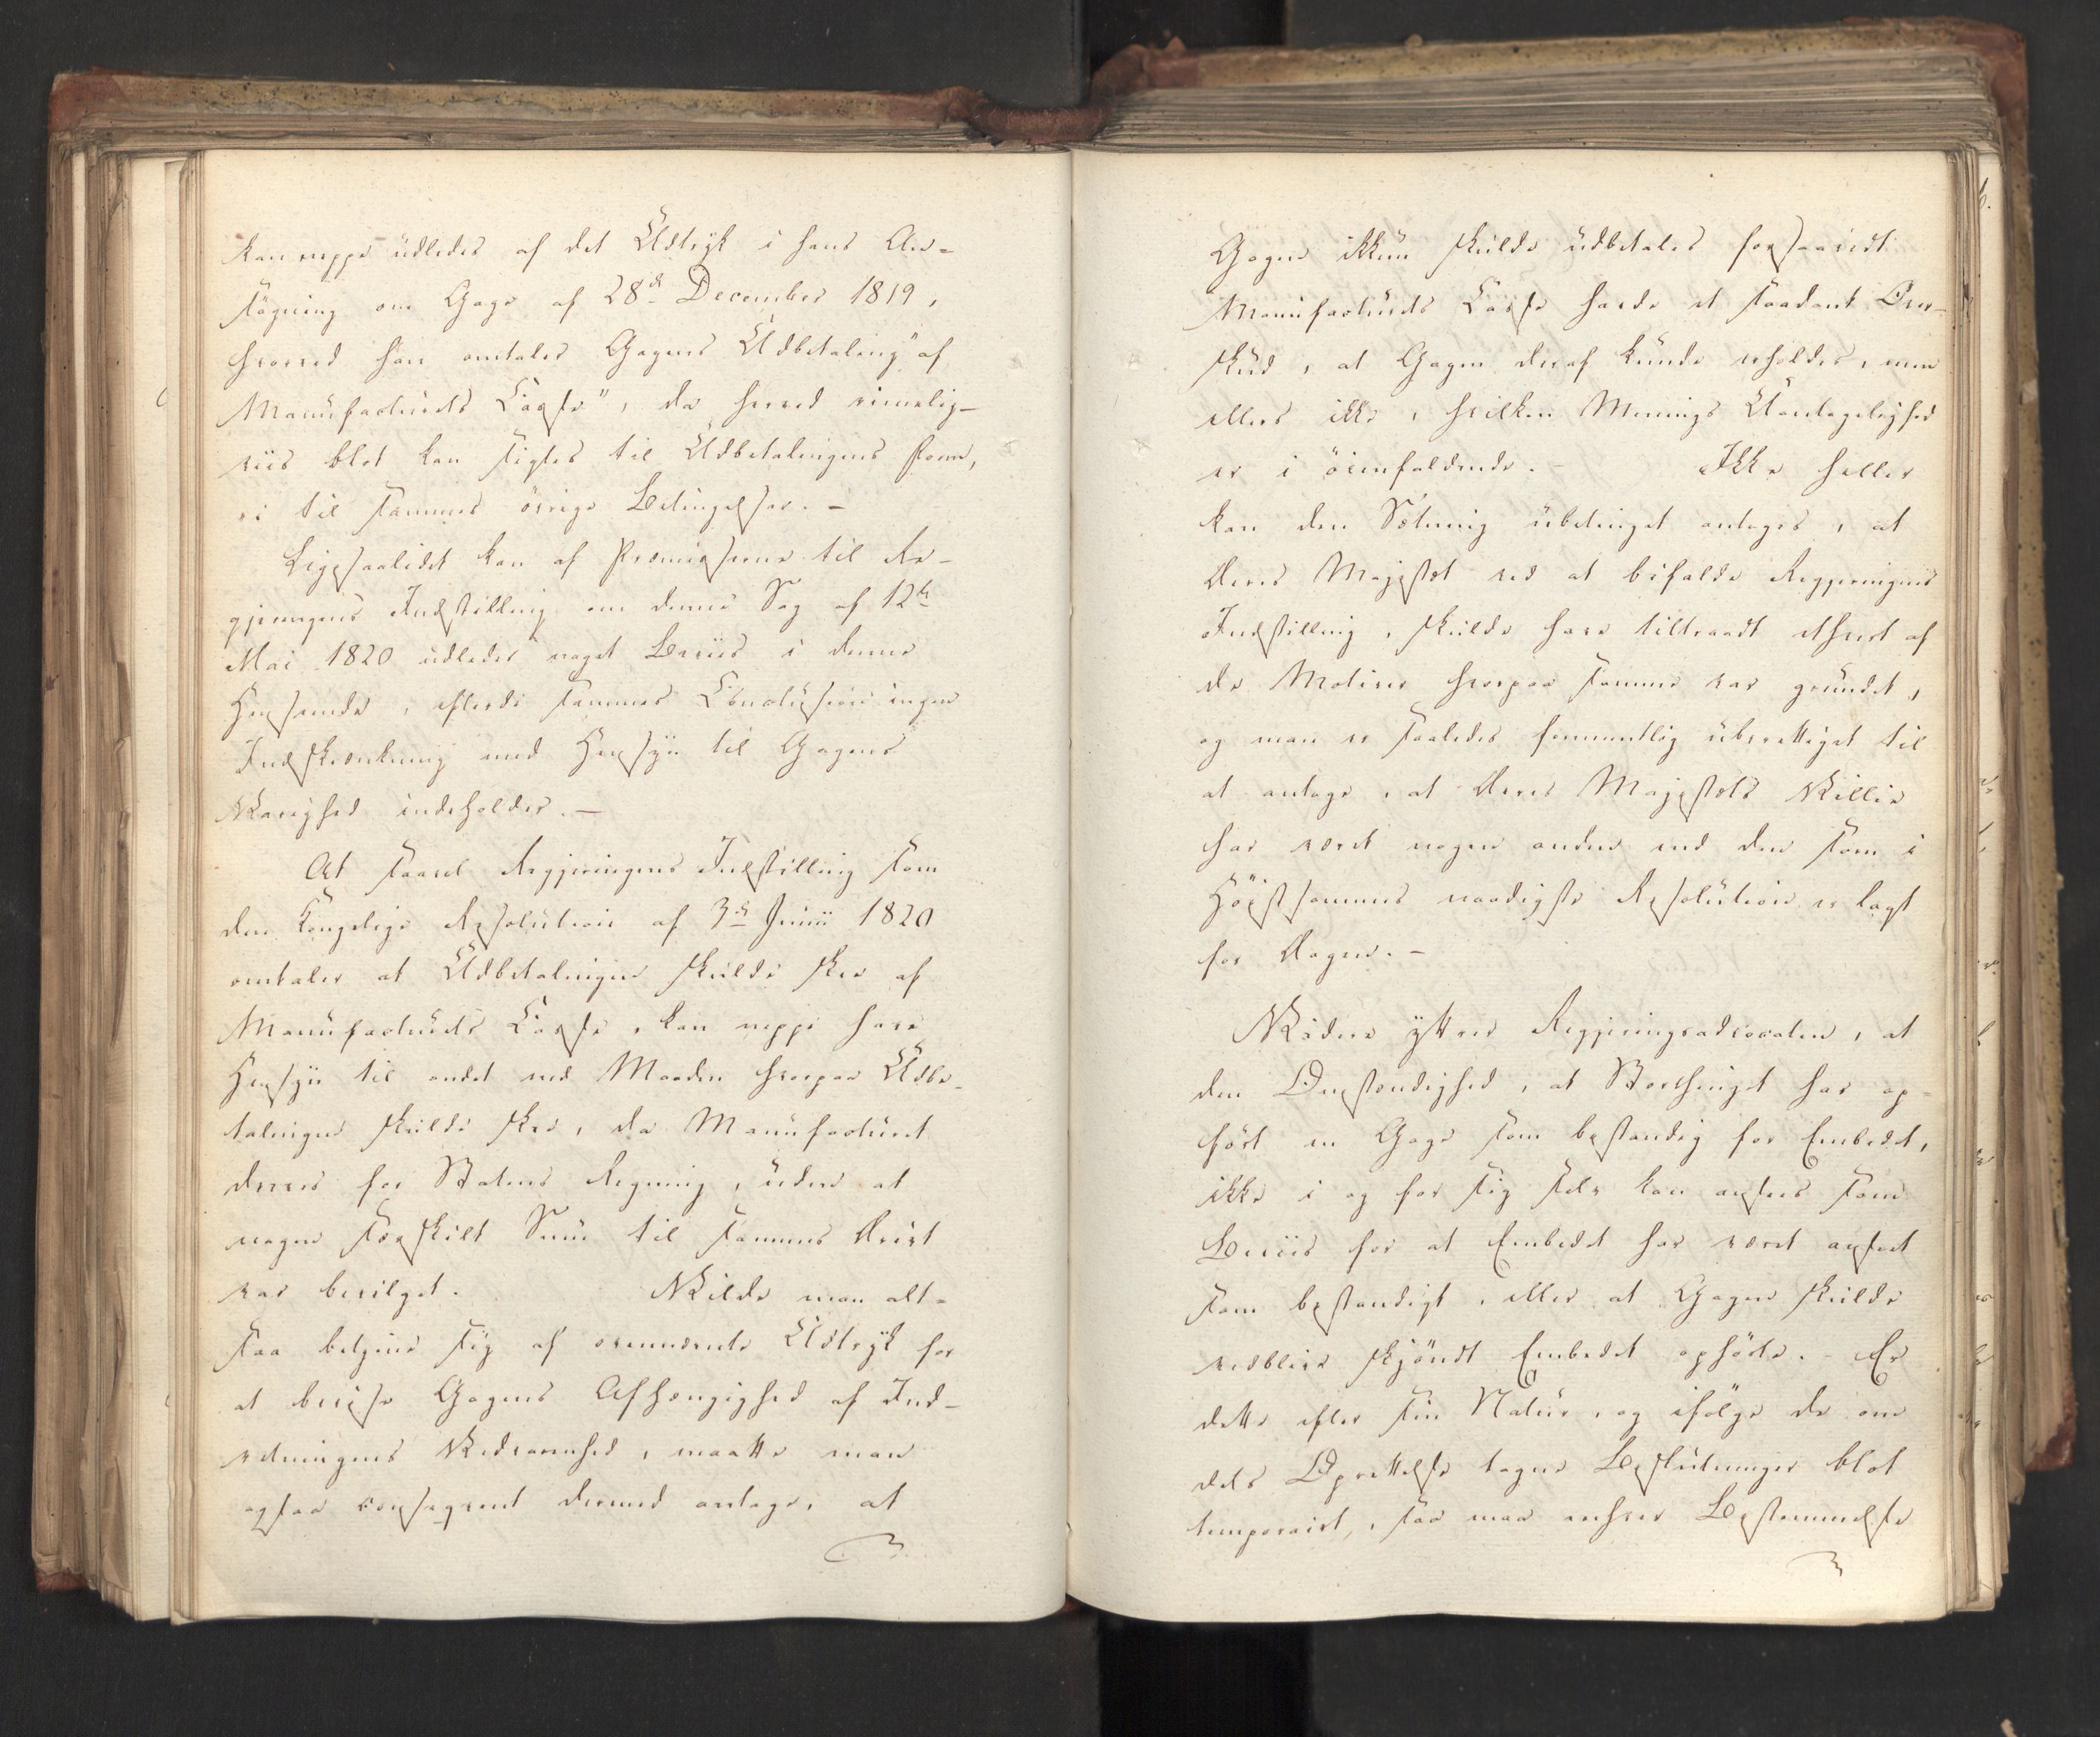 kan neppe udledes af det Udtryk i hans An-
søgning om Gage af 28de December 1819,
hvorved han omtaler Gagens Udbetaling "af
Manufacturets Casse", da herved rimelig-
viis blot kan sigtes til Udbetalingens Form,
ei til sammes övrige Betingelser. -
Ligesaalidet kan af Præmisserne til Re-
gjeringens Indstilling om denne Sag af 12te
Mai 1820 udledes noget Beviis i denne
Henseende, efterdi sammes Conclusion ingen
Indskrænkning med Hensyn til Gagens
Varighed indeholder. -
At saavel Regjeringens Indstilling som
den Kongelige Resolution af 3die Junii 1820
omtaler at Udbetalingen skulde skee af
Manufacturets Casse, kan neppe have
Hensyn til andet end Maaden hvorpaa Udbe-
talingen skulde skee, da Manufacturet
dreves for Statens Regning, uden at
nogen særskilt Sum til sammes Drivt
var bevilget. Vilde man alt-
saa betjene sig af ovennævnte Udtryk for
at bevise Gagens Afhængighed af Ind-
retningens Vedvarenhed, maatte man
ogsaa conseqvent dermed antage, at
Gagen ikkun skulde udbetales forsaavidt
Manufacturets Casse havde et saadant Over-
skud, at Gagen deraf kunde erholdes, men
ellers ikke, hvilken Menings Uantagelighed
er i öinefaldende. - Ikke heller
kan den Sætning ubetinget antages, at
Deres Majestæt ved at bifalde Regjeringens
Indstilling, skulde have tiltraadt ethvert af
de Motiver hvorpaa samme var grundet,
og man er saaledes formentlig uberettiget til
at antage, at Deres Majestæts Villie
har været nogen anden end den som i
Höistsammes naadigste Resolution er lagt
for Dagen. -
Videre yttrer Regjeringsadvocaten, at
den Omstændighed, at Storthinget har op-
fört en Gage som bestandig for Embedet,
ikke i og for sig selv kan ansees som
Beviis for at Embedet har været anseet
som bestandigt, eller at Gagen skulde
vedblive skjöndt Embedet ophörte. - Er
dette efter sin Natur, og ifölge de om
dets Oprettelse tagne Beslutninger blot
temporairt, saa maa enhver Bestemmelse